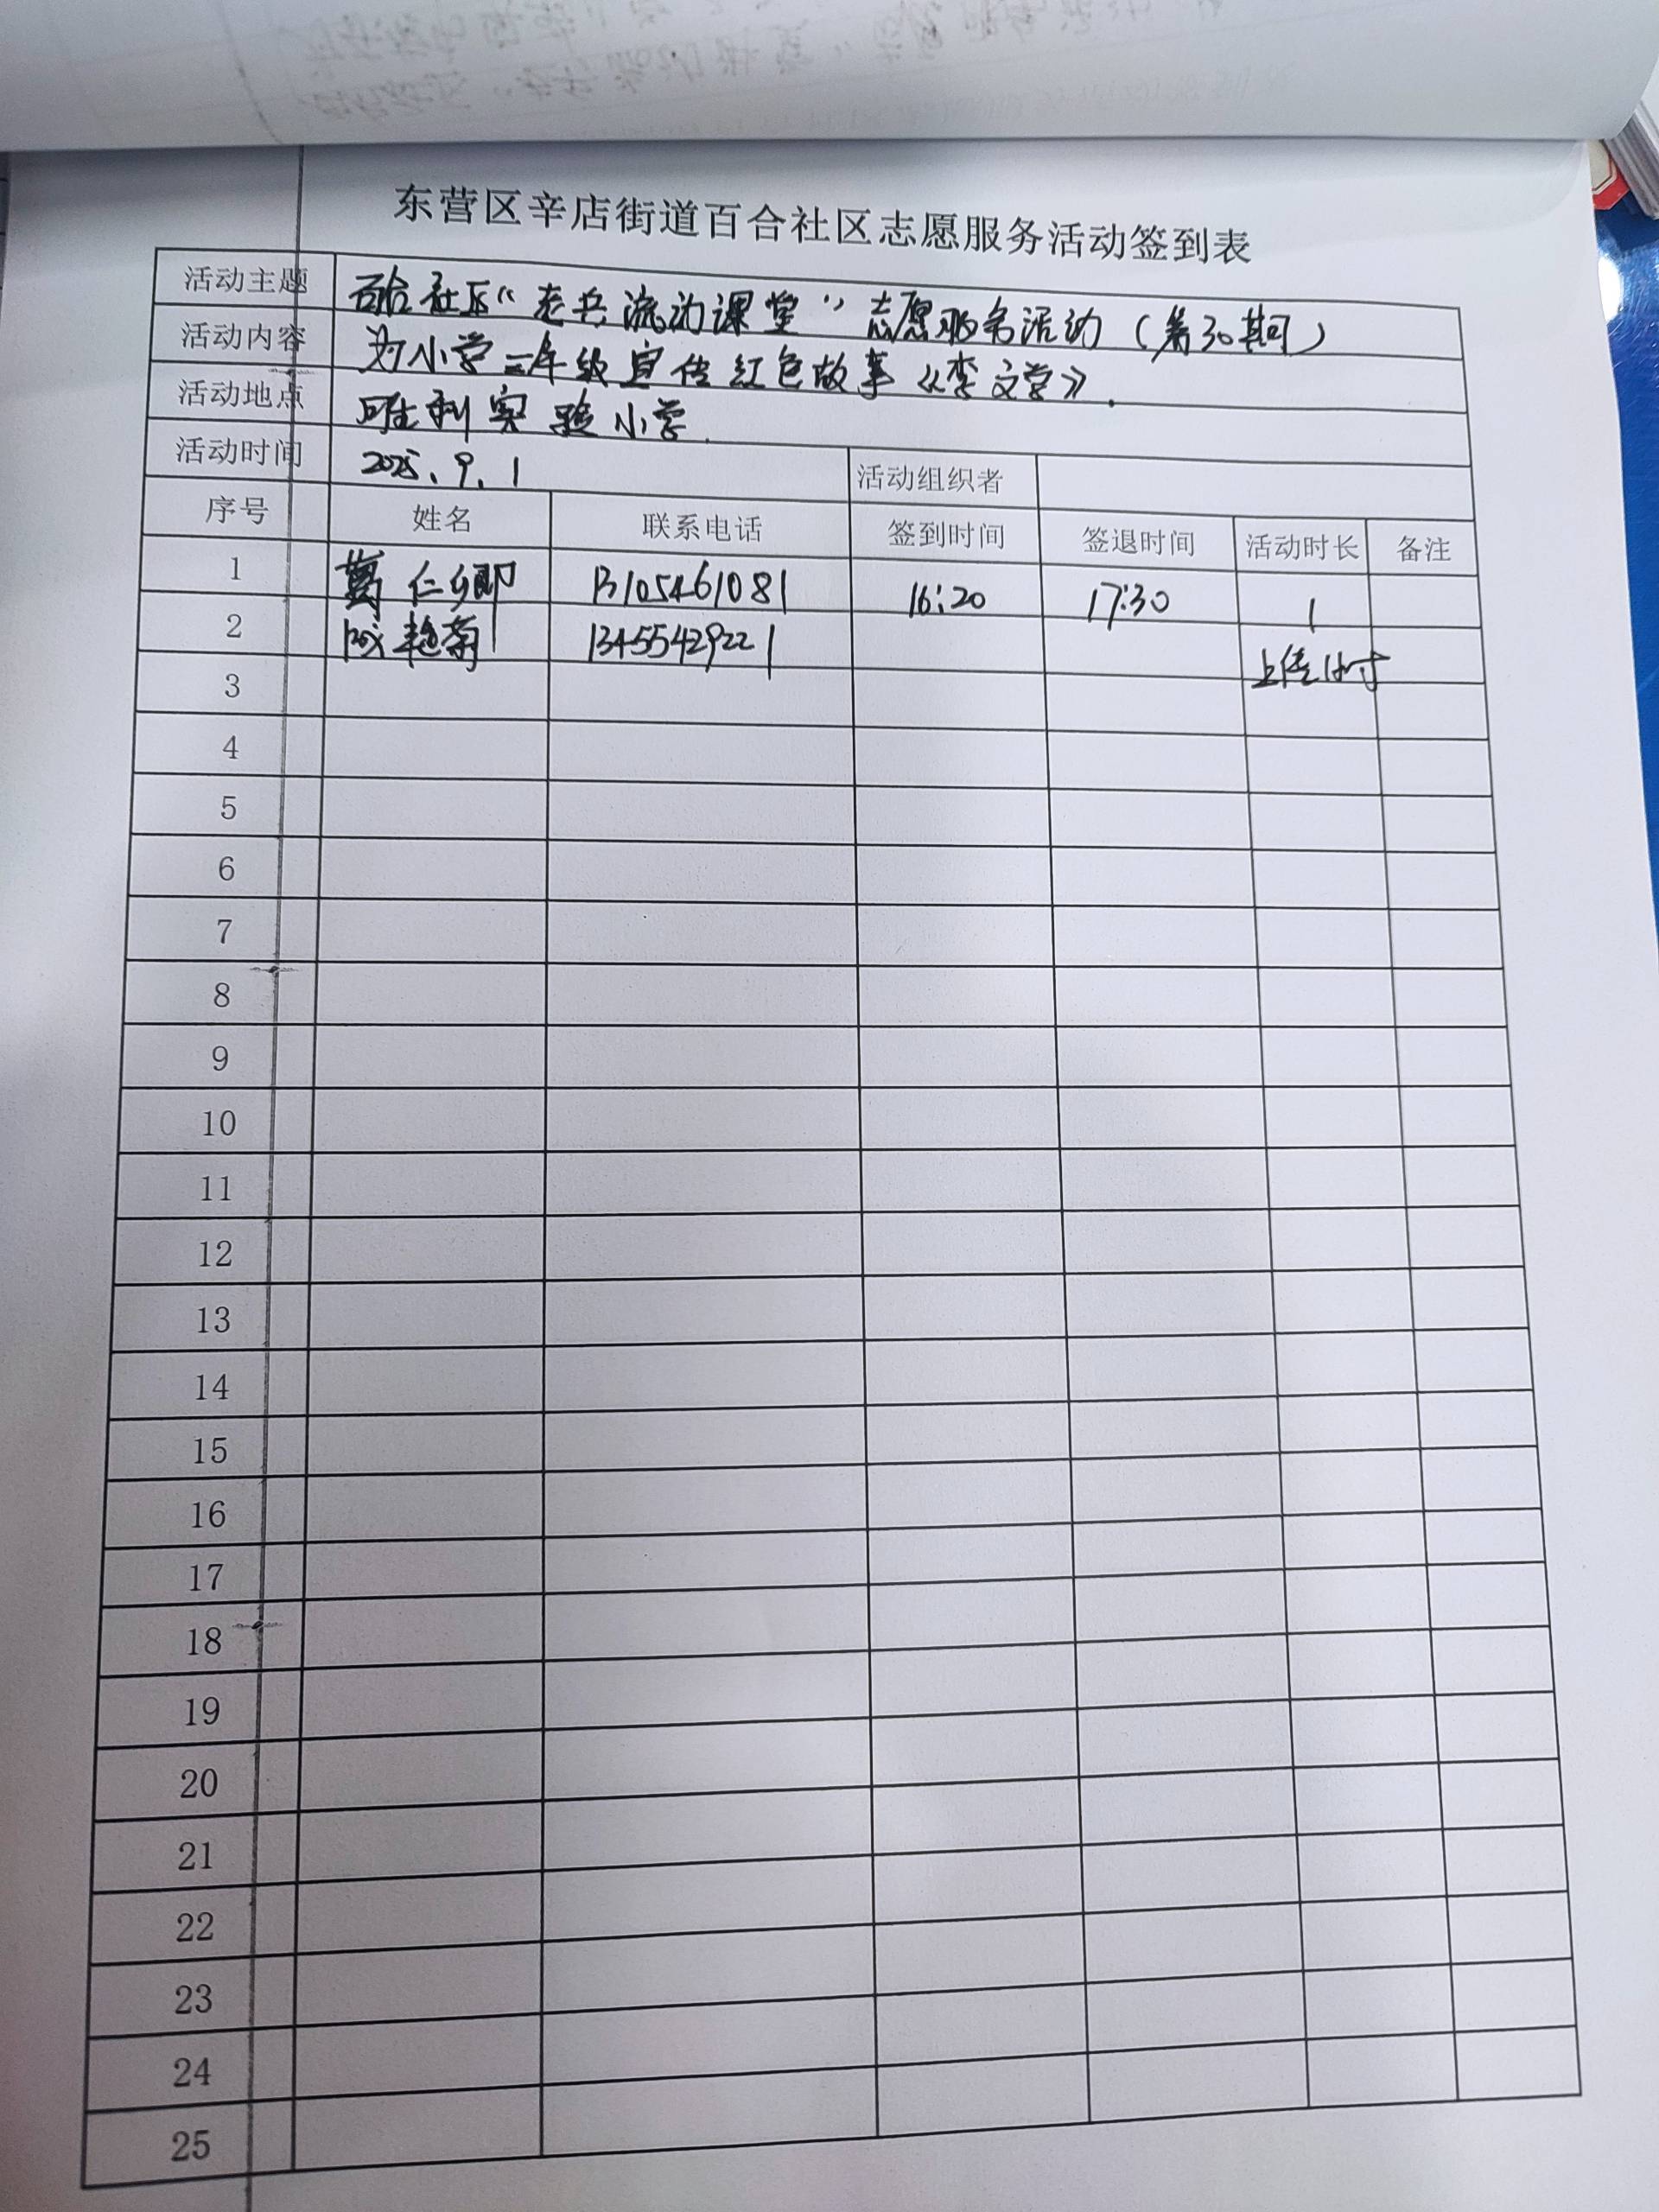 东营区辛店街道百合社区志愿服务活动签到表
活动主题 百合社区“老兵流动课堂”志愿服务活动（第30期）
活动内容 为小学二年级宣传红色故事《李文堂》.
活动地点 胜利实验小学.
活动时间 2025.9.1 活动组织者
序号 姓名 联系电话 签到时间 签退时间 活动时长 备注
1 葛仁卿 13105461081 16:20 17:30 1
2 艳菊 13455429221 上传1小时
3
4
5
6
7
8
9
10
11
12
13
14
15
16
17
18
19
20
21
22
23
24
25